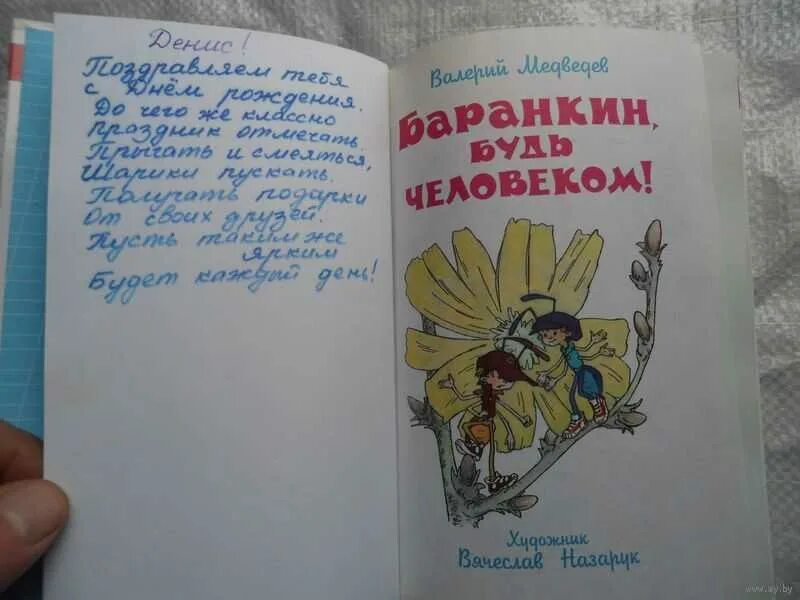 Денис!
Поздравляем тебя
с Днём рождения.
До чего же классно
Праздник отмечать.
Прыгать и смеяться,
Шарики пускать.
Получать подарки
От своих друзей.
Пусть таким же
ярким
Будет каждый день!
Валерий Медведев
Баранкин,
будь
человеком!
Художник
Вячеслав Назарук
www.ay.by